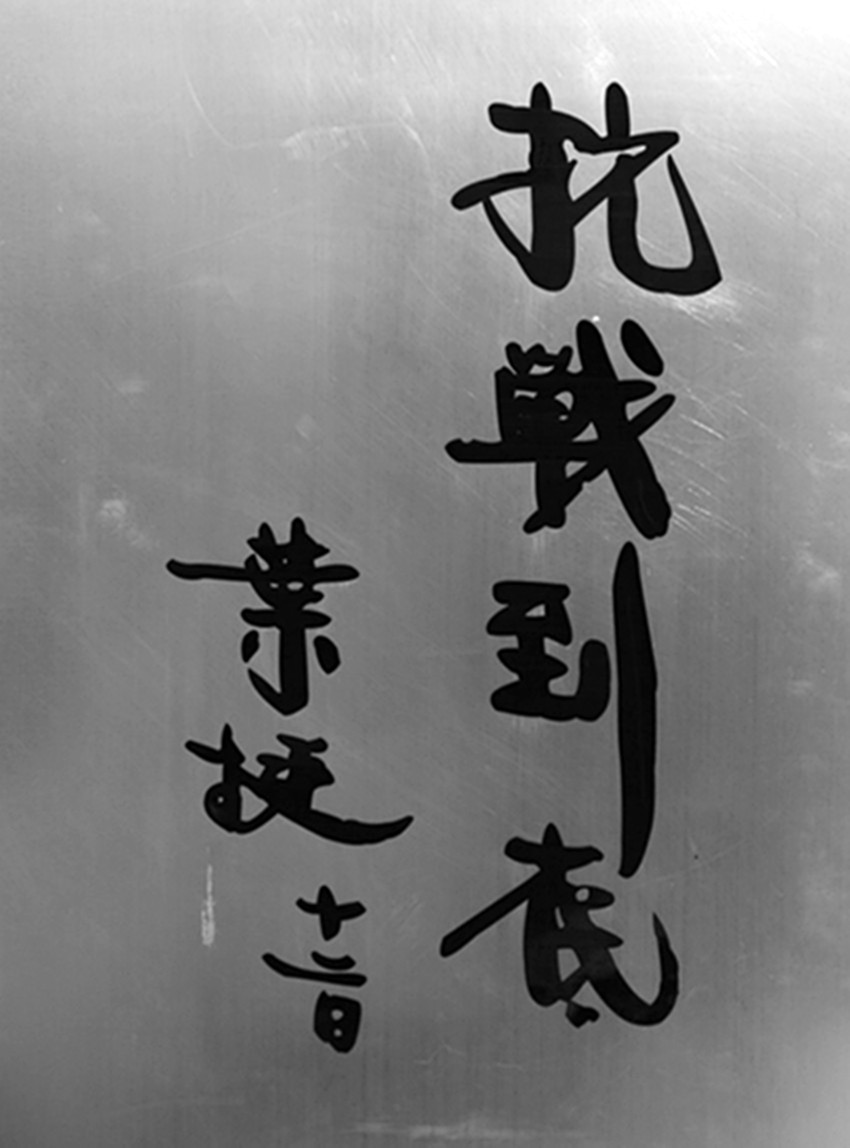 抗戰到底
葉挺